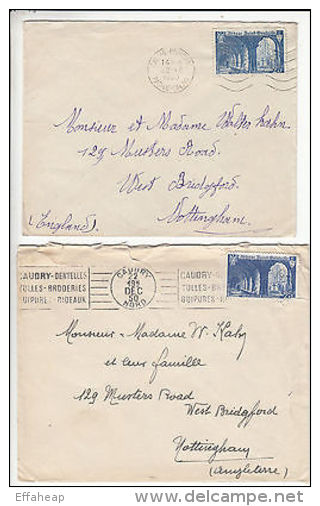 Abbaye Saint-Wandrille
Monsieur et Madame Walter Kahn.
129 Musters Road.
West Bridgeford.
(England) Nottingham.
CAUDRY-DENTELLES
TULLES-BRODERIES
GUIPURES-RIDEAUX
CAUDRY
DEC
50
NORD
CAUDRY-
TULLES-BR
GUIPURES-R
Monsieur-Madame W. Kahn
et leur famille
129 Musters Road
West Bridgford
Nottingham
(Angleterre)
Effaheap
www.delcampe.net